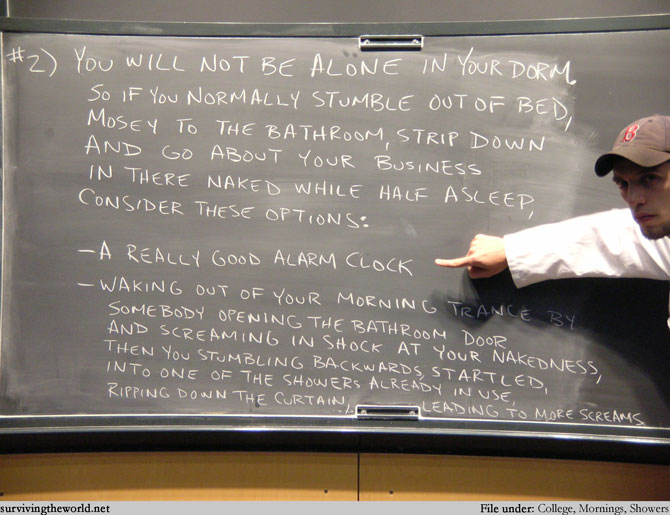 #2) YOU WILL NOT BE ALONE IN YOUR DORM.
SO IF YOU NORMALLY STUMBLE OUT OF BED,
MOSEY TO THE BATHROOM, STRIP DOWN
AND GO ABOUT YOUR BUSINESS
IN THERE NAKED WHILE HALF ASLEEP,
CONSIDER THESE OPTIONS:
– A REALLY GOOD ALARM CLOCK
– WAKING OUT OF YOUR MORNING TRANCE BY
SOMEBODY OPENING THE BATHROOM DOOR
AND SCREAMING IN SHOCK AT YOUR NAKEDNESS,
THEN YOU STUMBLING BACKWARDS, STARTLED,
INTO ONE OF THE SHOWERS ALREADY IN USE,
RIPPING DOWN THE CURTAIN, LEADING TO MORE SCREAMS
B
survivingtheworld.net File under: College, Mornings, Showers